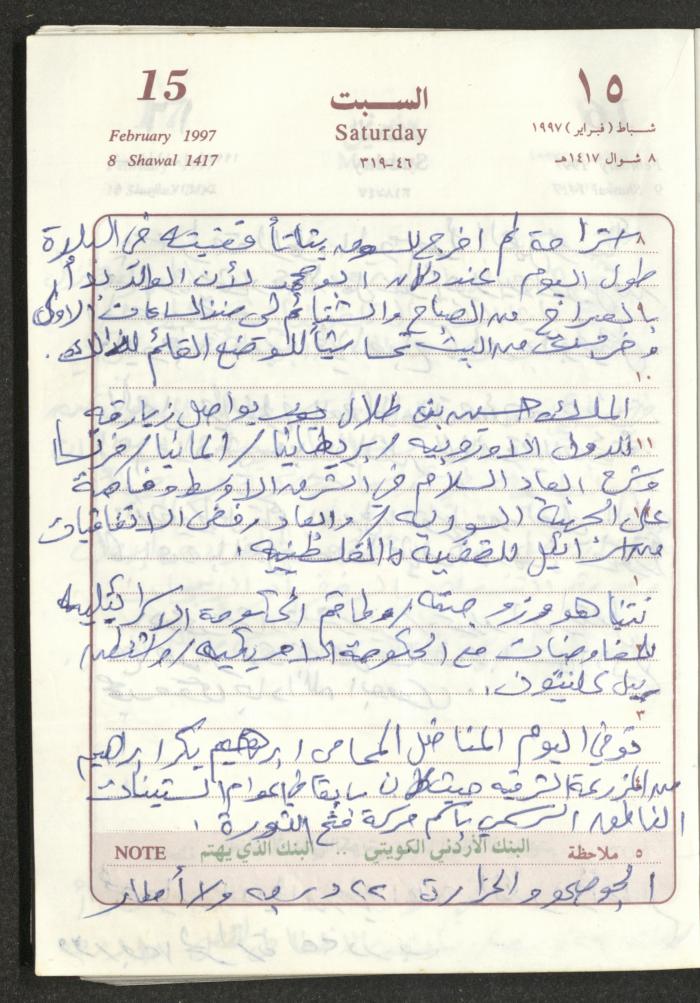 15
February 1997
8 Shawal 1417
السبت
Saturday
٤٦-٣١٩
١٥
شباط (فبراير) ١٩٩٧
٨ شوال ١٤١٧هـ
٨ استراحة لم اخرج للسوق بتاتاً قضيته في البلدة
طول اليوم عند دكان ابو محمد لأن الوالد بدأ
٩ بالصراخ من الصباح والشتائم لي منذ الساعات الاولى
وخرجت من البيت تحاشياً للوضع القائم لذلك.
١٠
الملك حسين بن طلال يواصل زيارته
١١ للدول الاوروبيه / بريطانيا / المانيا / فرنسا
السلام في الشرق الاوسط وخاصة
على الجبهة السوريه / رفض الاتفاقيات
من اسرائيل للقضية الفلسطينيه.
١
نتنياهو وزوجته / وطاقم الحكومة الاسرائيليه
للمفاوضات مع الحكومة الامريكيه / واشنطن
بيل كلينتون.
٣
توفي اليوم المناضل المحامي ابرهيم بكر ابراهيم
من المزرعة الشرقيه حيث كان سابقا في اعوام الستينات
الناطق الرسمي باسم حركة فتح الثورة.
NOTE
البنك الأردني الكويتي .. البنك الذي يهتم
٥ ملاحظة
الجو صحو والحرارة ٢٢ درجه ولا أمطار